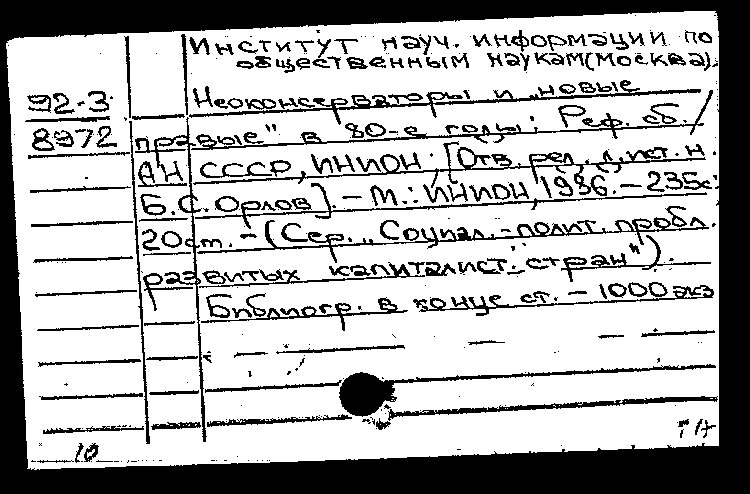 Институт науч. информации по
общественным наукам (Москва).
92-3
Неоконсерваторы и „новые
8972
правые" в 80-е годы: Реф. сб. /
АН СССР, ИНИОН; [Отв. ред. д. ист. н.
Б.С. Орлов]. – М.: ИНИОН, 1986. – 235с;
20см. – (Сер. „Социал.-полит. пробл.
развитых капиталист. стран").
Библиогр. в конце ст. – 1000 экз
10